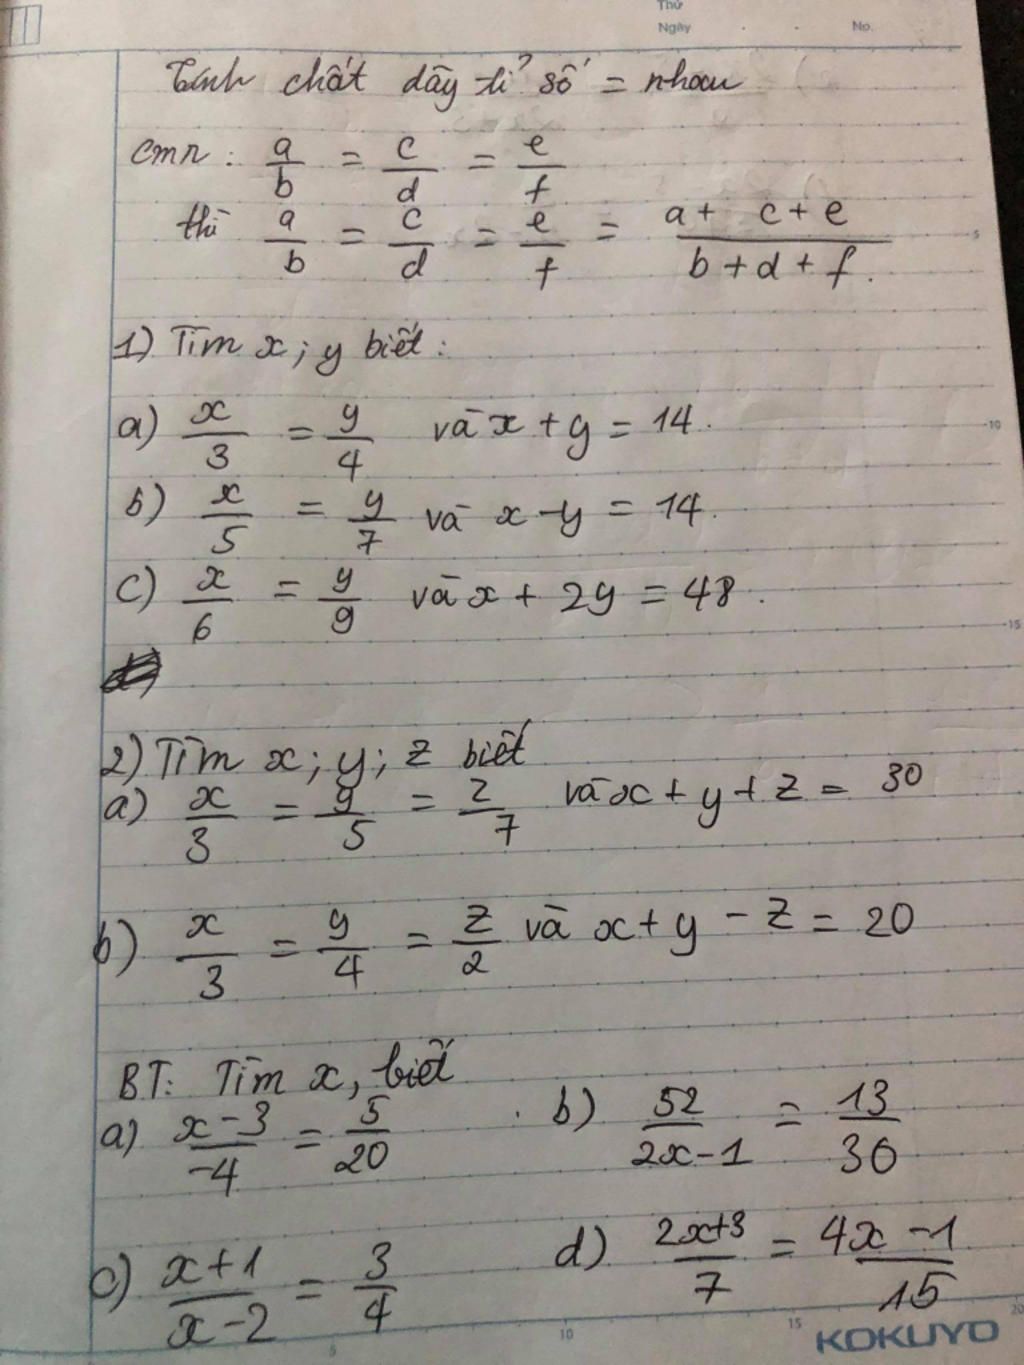 Thứ
Ngày . . No.
Tính chất dãy tỉ số = nhau
cmr : a/b = c/d = e/f
thì a/b = c/d = e/f = a + c + e / b + d + f .
5
1) Tìm x ; y biết :
a) x/3 = y/4 và x + y = 14 .
10
b) x/5 = y/7 và x - y = 14 .
c) x/6 = y/9 và x + 2y = 48 .
15
2) Tìm x ; y ; z biết
a) x/3 = y/5 = z/7 và x + y + z = 30
b) x/3 = y/4 = z/2 và x + y - z = 20
BT: Tìm x, biết
a) x - 3/-4 = 5/20 b) 52/2x - 1 = 13/30
c) x + 1/x - 2 = 3/4 d) 2x + 3/7 = 4x - 1/15
5 10 15 20
KOKUYO